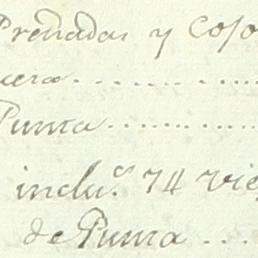 Preñadas y Coso
uera..........
Punta..........
inclu.s 74 vie
de Punta ...